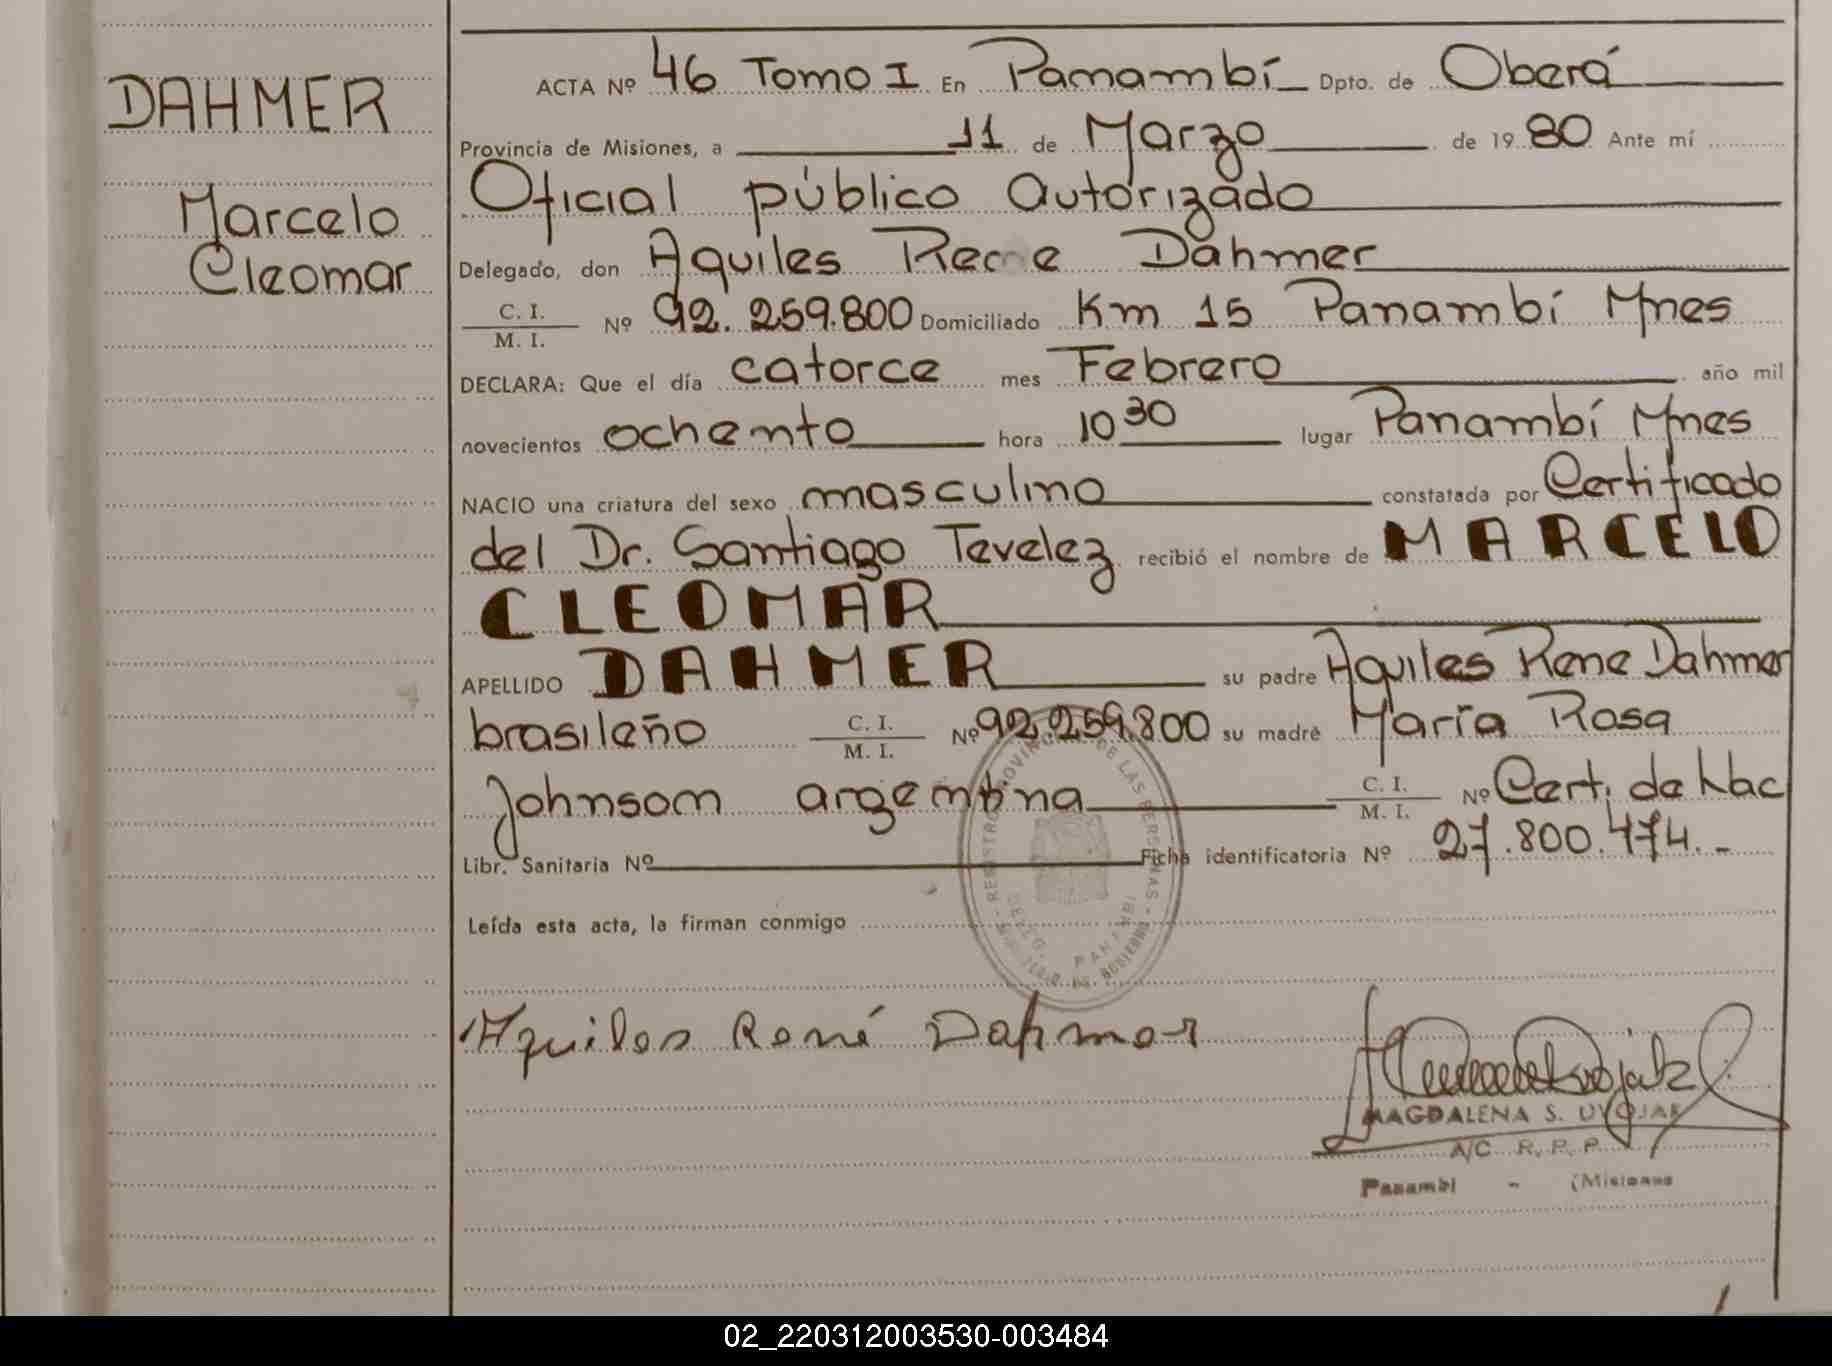 DAHMER
Marcelo
Cleomar
ACTA Nº 46 Tomo I En Panambí Dpto. de Oberá
Provincia de Misiones, a 11 de Marzo de 1980 Ante mí
Oficial público autorizado
Delegado, don Aquiles Rene Dahmer
C. I.
M. I. Nº 92.259.800 Domiciliado Km 15 Panambí Mnes
DECLARA: Que el día catorce mes Febrero año mil
novecientos ochenta hora 10 30 lugar Panambí Mnes
NACIO una criatura del sexo masculino constatada por Certificado
del Dr. Santiago Tevelez recibió el nombre de MARCELO
CLEOMAR
APELLIDO DAHMER su padre Aquiles Rene Dahmer
brasileño C. I. M. I. Nº 92.259.800 su madre María Rosa
Johnson argentina C. I. M. I. Nº Cert. de Nac
Libr. Sanitaria Nº Ficha identificatoria Nº 27.800.474.-
Leída esta acta, la firman conmigo
REGISTRO PROVINCIAL DE LAS PERSONAS - MINISTERIO DE GOBIERNO -
DELEG. PANAMBI
Aquiles René Dahmer
MAGDALENA S. DVOJAK
A/C R. P. P.
Panambi - (Misiones
02_220312003530-003484